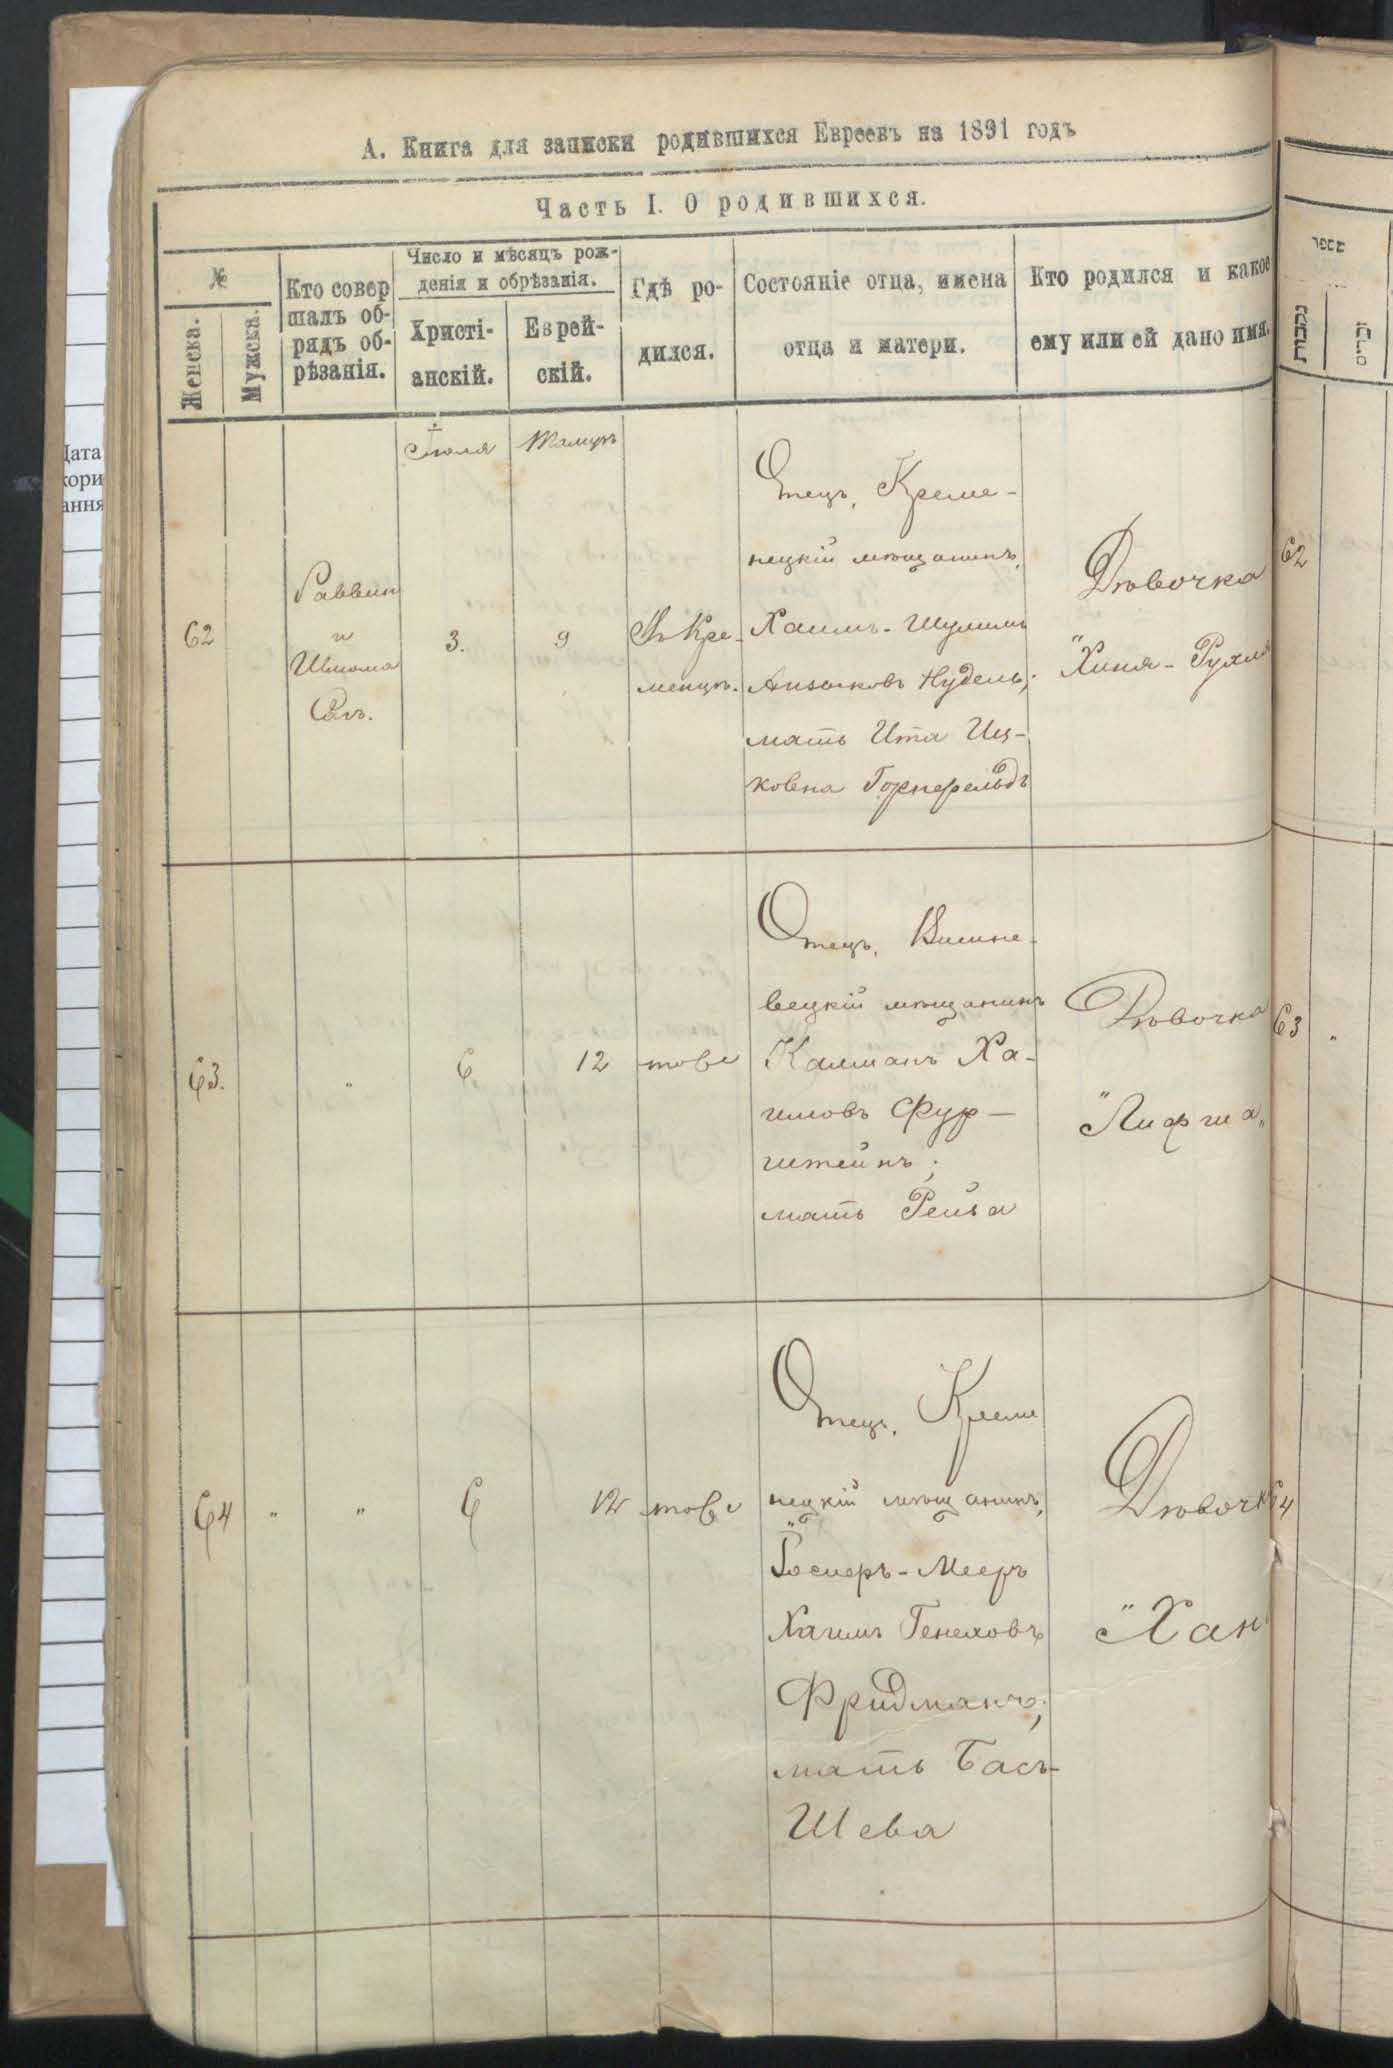 А. Книга для записки родившихся Евреевъ на 1891 годъ
Часть I. О родившихся.
№
Женска.
Мужска.
Кто совер
шалъ об-
рядъ об-
рѣзанія.
Число и мѣсяцъ рож-
денія и обрѣзанія.
Христі-
анскій.
Еврей-
скій.
Гдѣ ро-
дился.
Состояніе отца, имена
отца и матери.
Кто родился и какое
ему или ей дано имя.
Іюля
Тамузъ
62
Раввин
и
3.
9
Въ Кре-
менцѣ.
Отецъ, Креме-
нецкій мѣщанинъ,
Хаимъ-Шулимъ
Нудель;
мать Ита Иц-
ковна Горнфельдъ
Дѣвочка
"Хиня-Рухля
63.
"
6
12
тоже
Отецъ, Вишне-
вецкій мѣщанинъ
Калманъ Ха-
имовъ Фур-
штейнъ;
мать Рейза
Дѣвочка
"Лифша"
64
"
"
6
12
тоже
Отецъ, Креме
нецкій мѣщанинъ,
Мееръ
Хаимъ Генеховъ
Фридманъ;
мать Бась-
Шева
Дѣвочк
"Хан
מספר
נקבות
זכרים
62
63
"
64
Дата
кори
ання